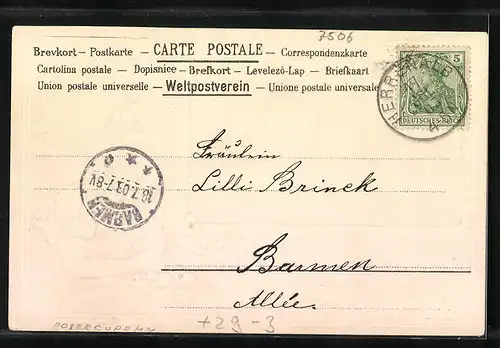 7506
Brevkort - Postkarte - CARTE POSTALE - Correspondenzkarte
Cartolina postale - Dopisnice - Brefkort - Levelező-Lap - Briefkaart
Union postale universelle - Weltpostverein - Unione postale universale
5
DEUTSCHES REICH
HERRENALB
BARMEN
18.7.03.7-8V
Fräulein
Lilli Brinck
Barmen
Allée.
+29-3